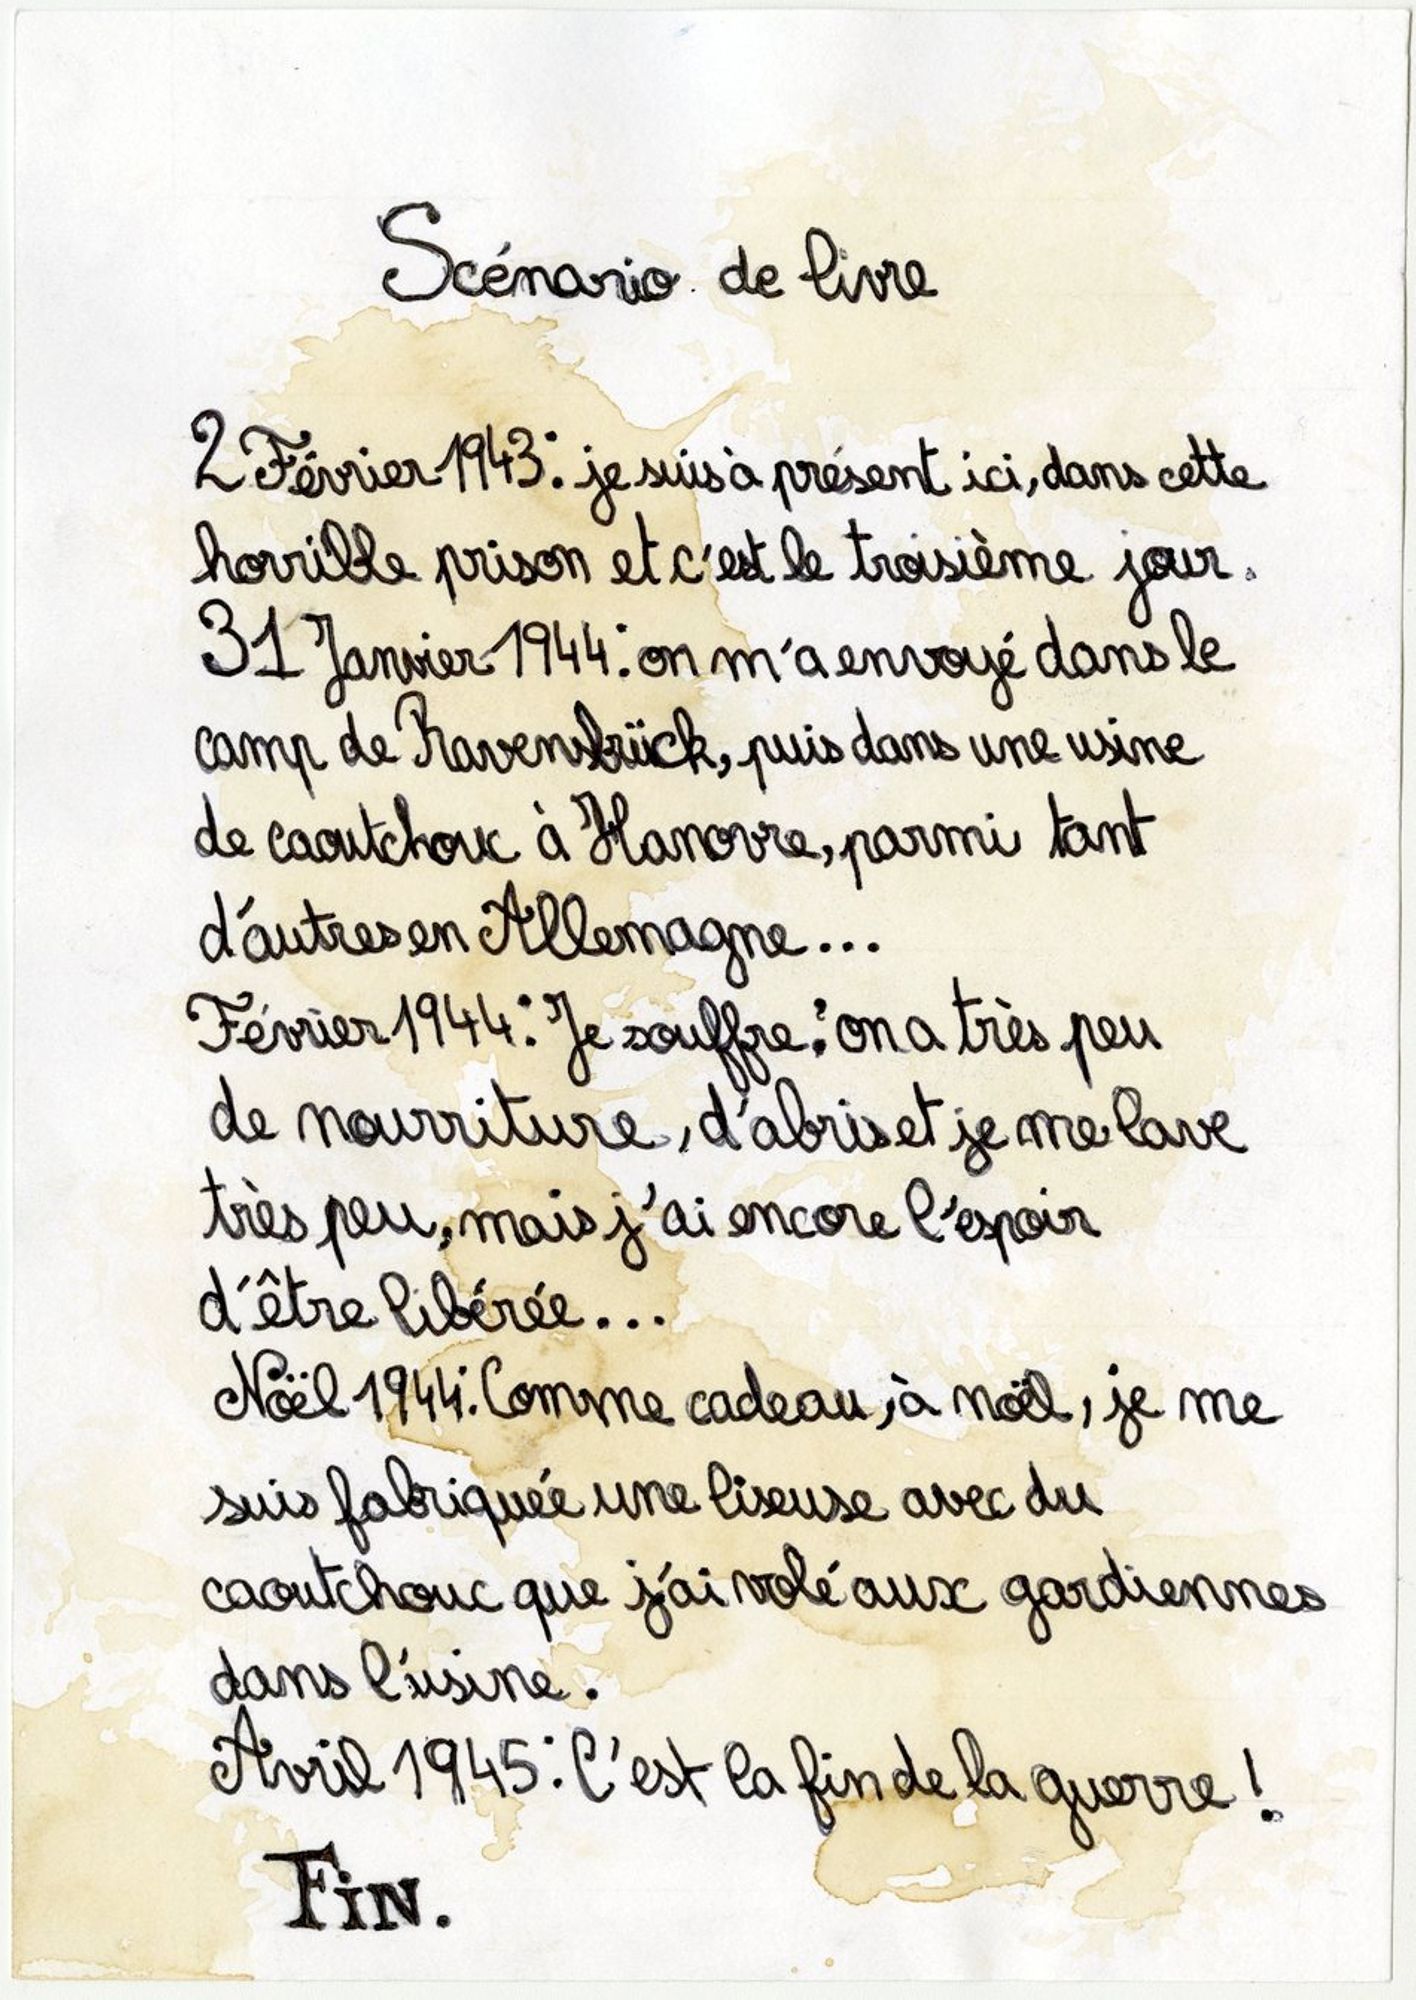 Scénario de livre
2 Février 1943: je suis à présent ici, dans cette
horrible prison et c'est le troisième jour.
31 Janvier 1944: on m'a envoyé dans le
camp de Ravensbrück, puis dans une usine
de caoutchouc à Hanovre, parmi tant
d'autres en Allemagne...
Février 1944: Je souffre: on a très peu
de nourriture, d'abris et je me lave
très peu, mais j'ai encore l'espoir
d'être libérée...
Noël 1944: Comme cadeau, à noël, je me
suis fabriquée une liseuse avec du
caoutchouc que j'ai volé aux gardiennes
dans l'usine.
Avril 1945: C'est la fin de la guerre!
FiN.